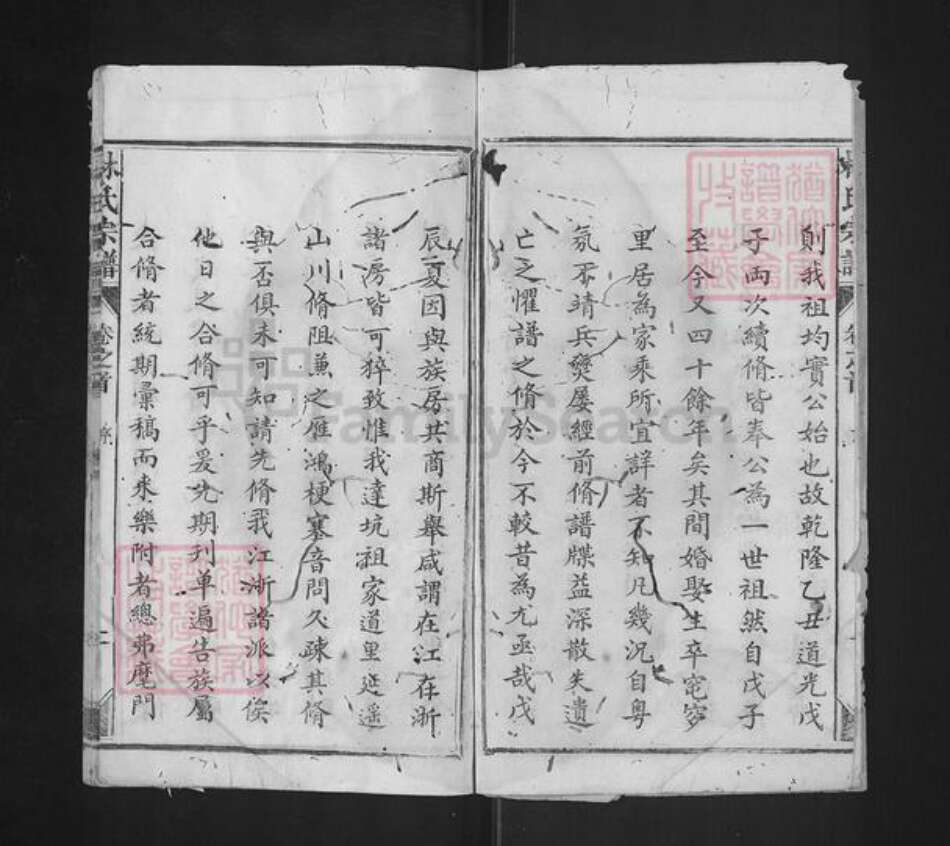 則我祖均實公始也故乾隆乙丑道光戊
子兩次續脩皆奉公為一世祖然自戊子
至今又四十餘年矣其間婚娶生卒窀穸
里居為家乘所宜詳者不知凡幾況自粤
氛不靖兵燹屡經前脩譜牒益深散失遺
亡之懼譜之脩於今不較昔為尤亟哉戊
辰夏因與族房共商斯舉咸謂在江在浙
諸房皆可猝致惟我達坑祖家道里延遥
山川脩阻兼之雁鴻梗塞音問久疎其脩
與否俱未可知請先脩我江浙諸派以俟
他日之合脩可乎爰先期刊单遍告族屬
合脩者統期彙稿而来樂附者總弗麾門
林氏宗譜
卷之首
序
FamilySearch